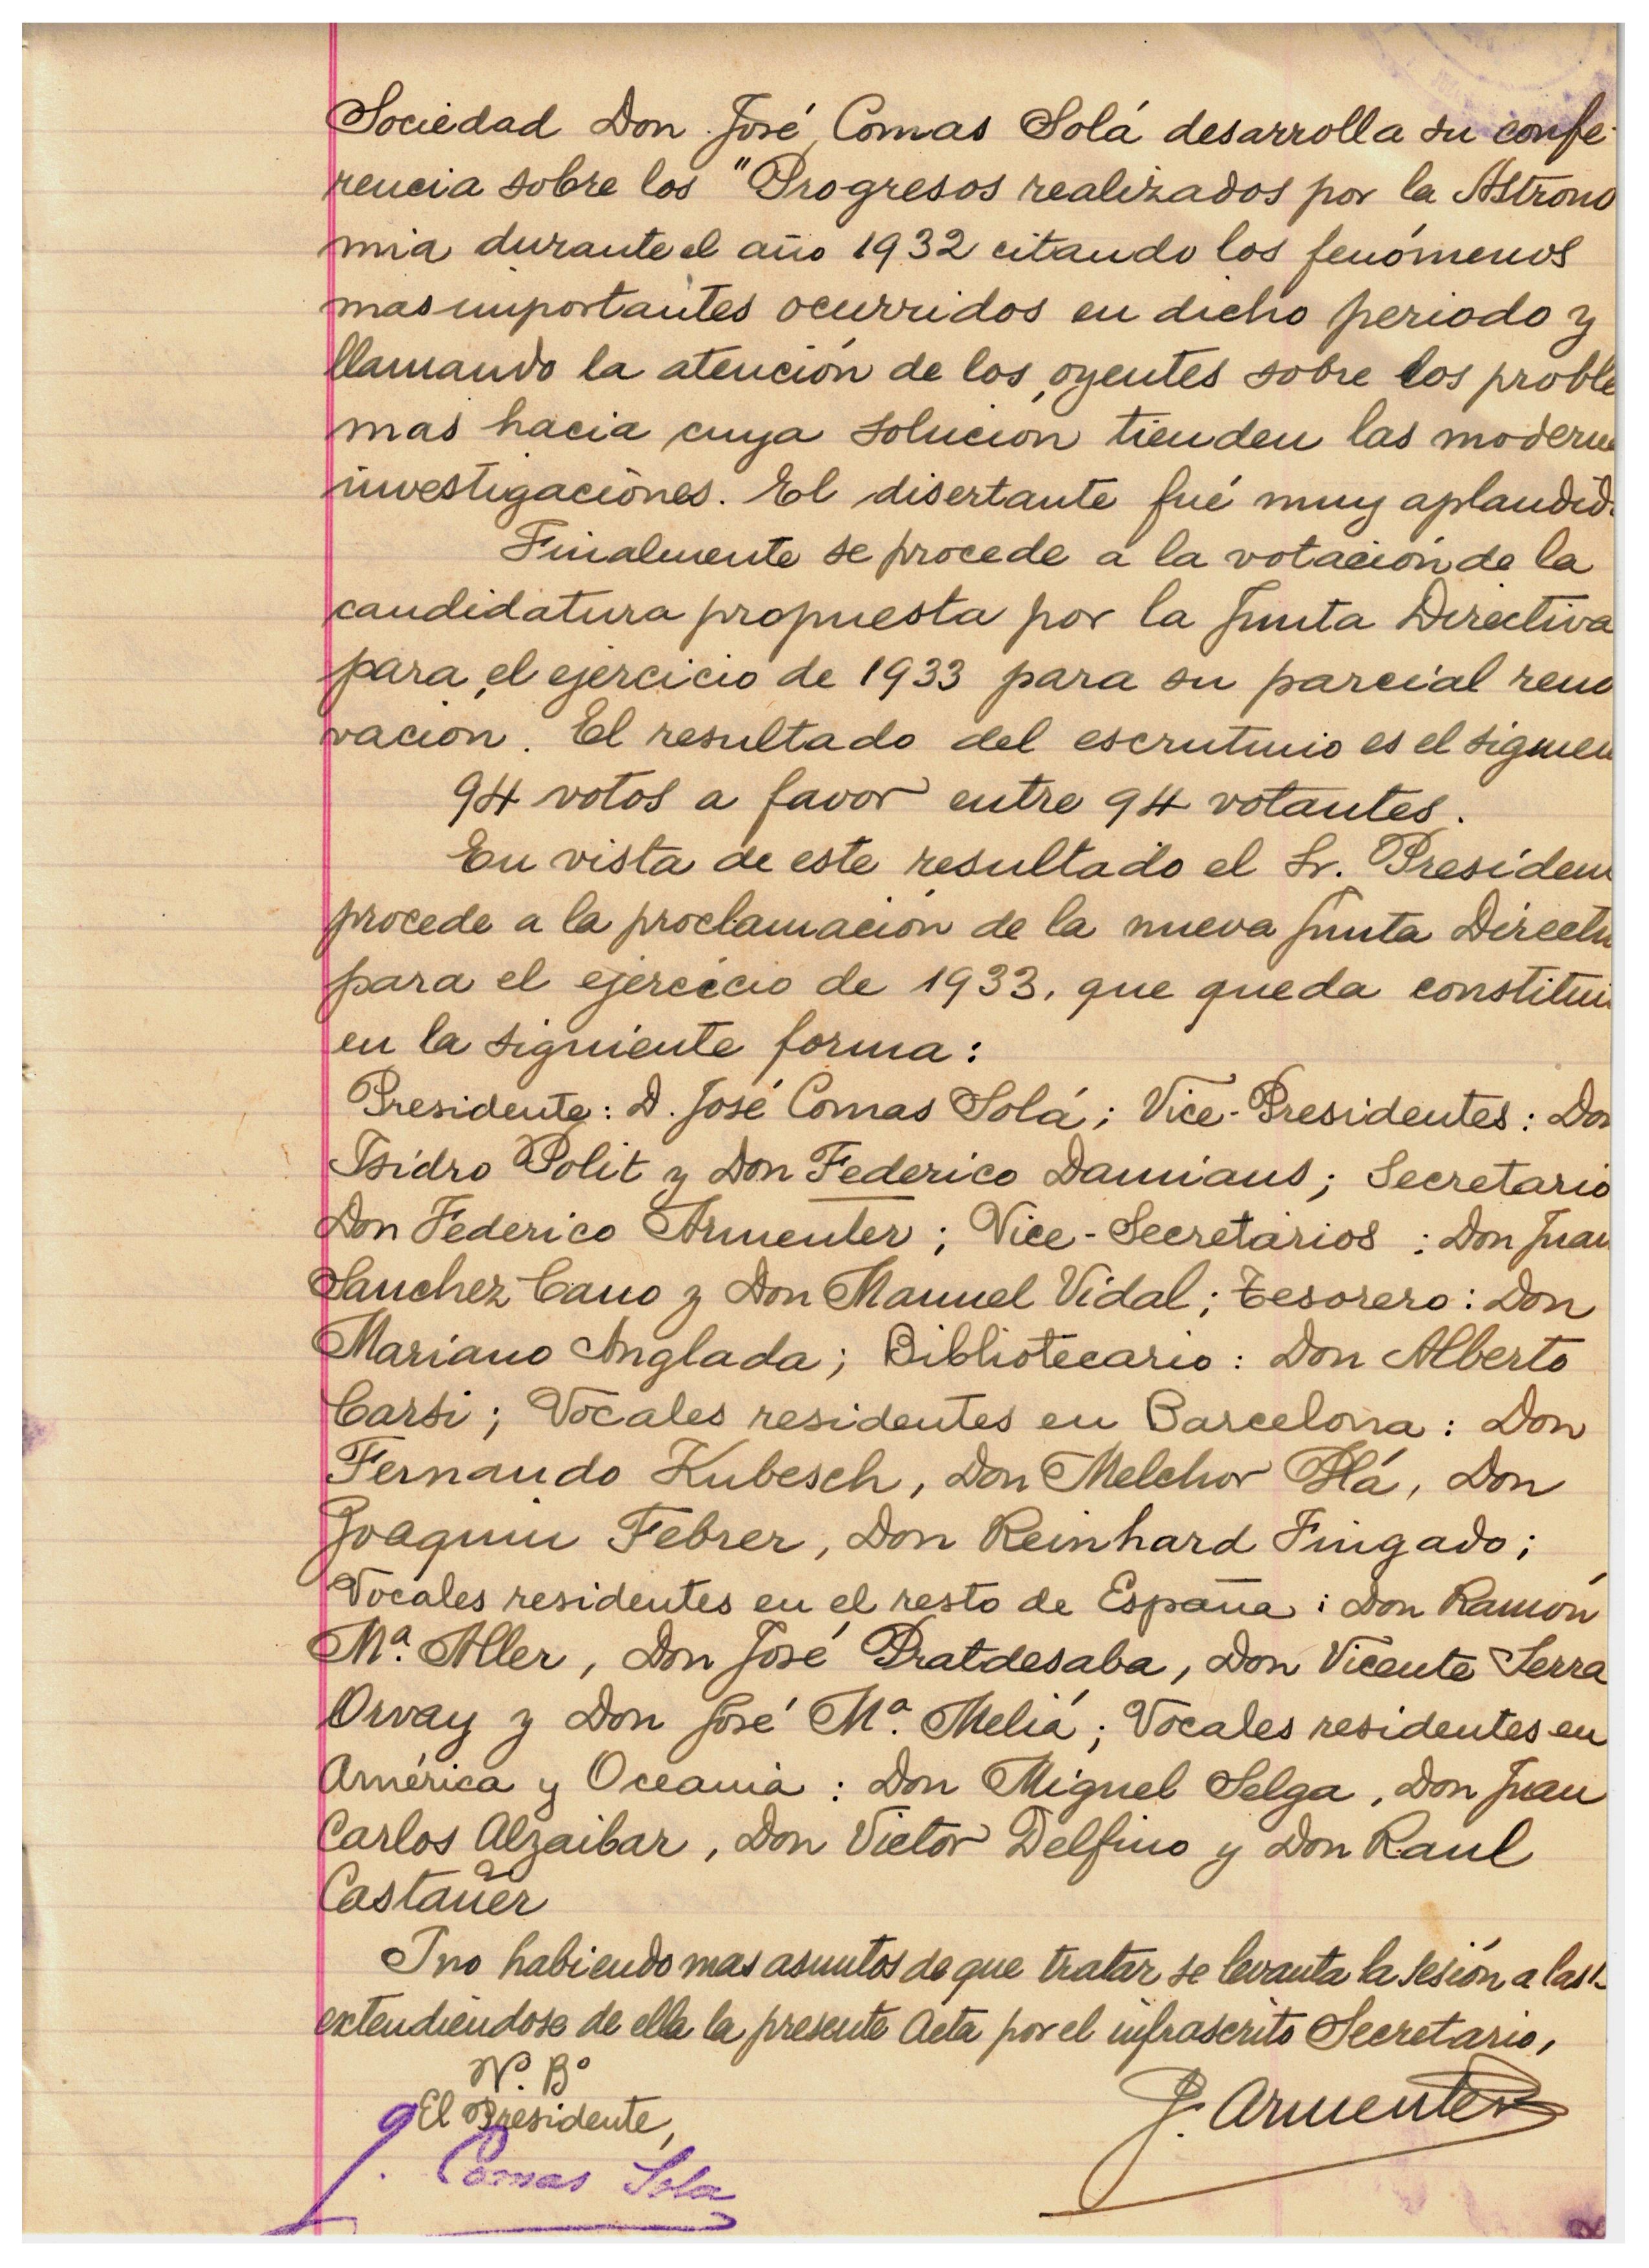 Sociedad Don José Comas Solá desarrolla su confe-
rencia sobre los "Progresos realizados por la Astrono
mia durante el año 1932 citando los fenómenos
mas importantes ocurridos en dicho periodo y
llamando la atención de los oyentes sobre los proble
mas hacia cuya solucion tienden las moderna
investigaciones. El disertante fué muy aplaudid
Finalmente se procede a la votación de la
candidatura propuesta por la Junta Directiva
para el ejercicio de 1933 para su parcial reno
vacion. El resultado del escrutinio es el siguien
94 votos a favor entre 94 votantes.
En vista de este resultado el Sr. Presiden
procede a la proclamación de la nueva Junta Directi
para el ejercicio de 1933, que queda constitui
en la siguiente forma:
Presidente: D. José Comas Solá; Vice-Presidentes: Don
Isidro Polit y Don Federico Damians; Secretario
Don Federico Armenter; Vice-Secretarios: Don Juan
Sanchez Cano y Don Manuel Vidal; Tesorero: Don
Mariano Anglada; Bibliotecario: Don Alberto
Carsi; Vocales residentes en Barcelona: Don
Fernando Kubesch, Don Melchor Plá, Don
Joaquin Febrer, Don Reinhard Fingado;
Vocales residentes en el resto de España: Don Ramón
Mª. Aller, Don José Pratdesaba, Don Vicente Serra
Orvay y Don José Mª. Meliá; Vocales residentes en
América y Oceania: Don Miguel Selga, Don Juan
Carlos Alzaibar, Don Victor Delfino y Don Raul
Castañer
Y no habiendo mas asuntos de que tratar se levanta la sesión a las
extendiéndose de ella la presente Acta por el infrascrito Secretario,
Vº. Bº
El Presidente,
F. Armenter
J. Comas Sola